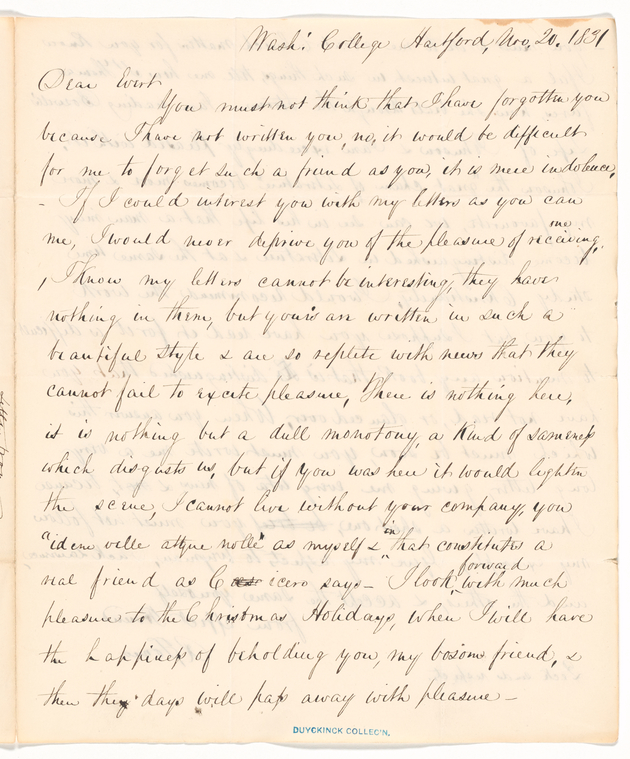 Wash: College Hartford, Nov. 20. 1831
Dear Evert
You must not think that I have forgotten you
because I have not written you, no, it would be difficult
for me to forget such a friend as you, it is mere indolence,
- If I could interest you with my letters as you can
me, I would never deprive you of the pleasure of receiving, me
I know my letters cannot be interesting, they have
nothing in them, but yours are written in such a
beautiful style & are so replete with news that they
cannot fail to excite pleasure, There is nothing here,
it is nothing but a dull monotony, a kind of sameness
which disgusts us, but if you was here it would lighten
the scene, I cannot live without your company, you
"idem velle atque nolle" as myself & in that constitutes a
real friend as Cicero says - I look forward with much
pleasure to the Christmas Holidays, when I will have
the happiness of beholding you, my bosom friend, &
then the days will pass away with pleasure -
DUYCKINCK COLLEC'N.